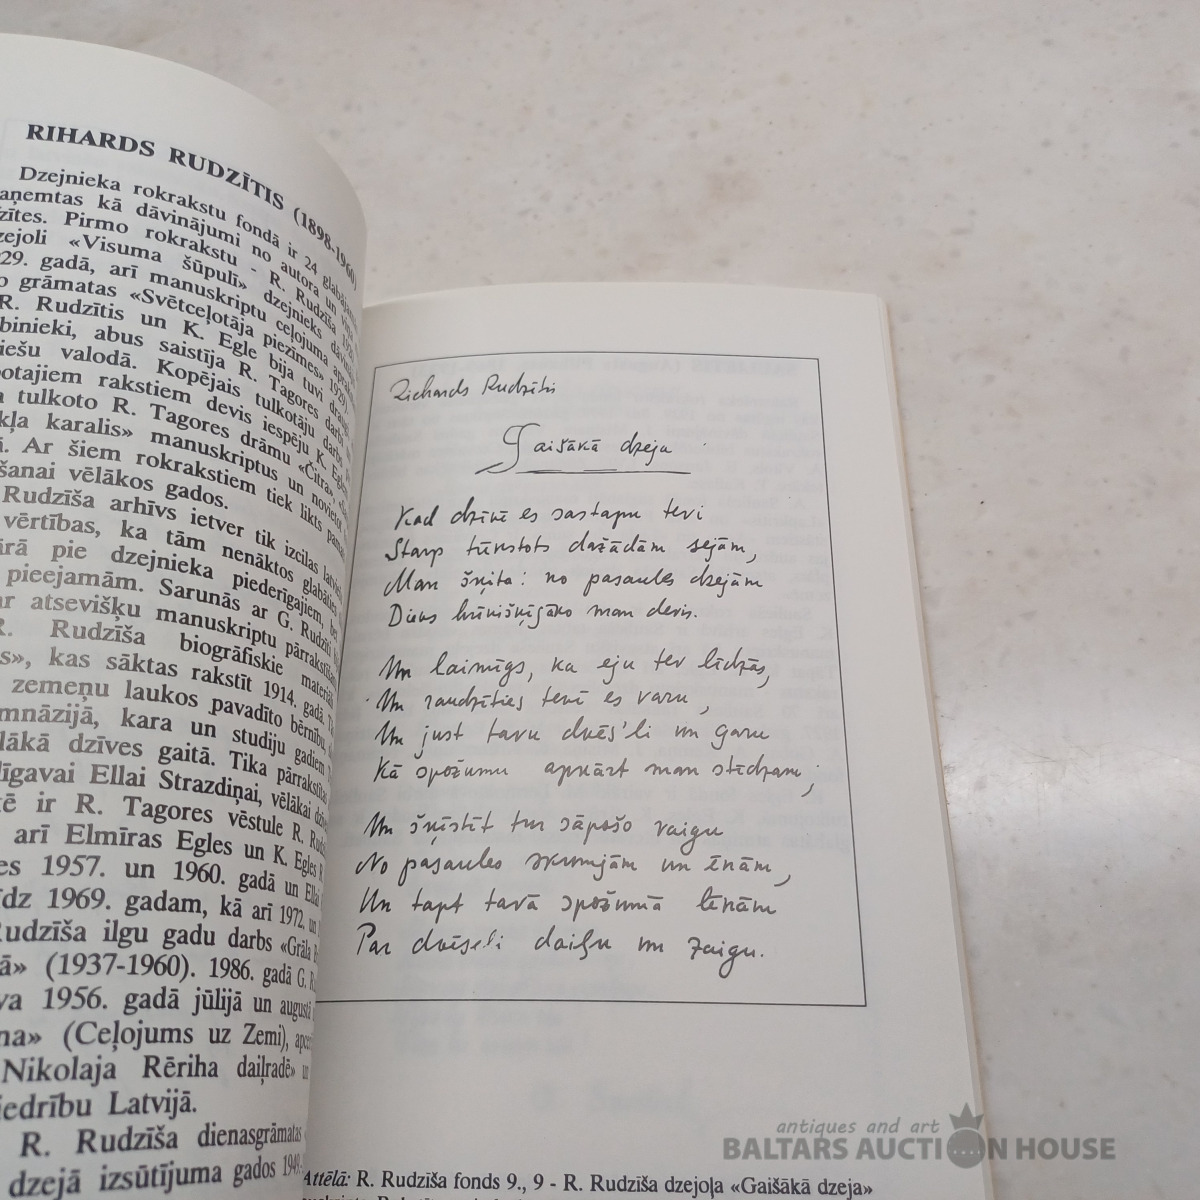 RIHARDS RUDZĪTIS (1898-1960)
Dzejnieka rokrakstu fondā ir 24 glabājamās
aņemtas kā dāvinājumi no autora un viņa
zītes. Pirmo rokrakstu - R. Rudzīša
zejoli «Visuma šūpulī» dzejnieks dāvināja
29. gadā, arī manuskriptu ceļojuma aprakstu
o grāmatas «Svētceļotāja piezīmes» 1929.
R. Rudzītis un K. Egle bija tuvi draugi
binieki, abus saistīja R. Tagores darbi
iešu valodā. Kopējais tulkotāju darbs
potajiem rakstiem devis iespēju K. Eglem
a tulkoto R. Tagores drāmu «Čitra»,
kļa karalis» manuskriptus un novietot
ā. Ar šiem rokrakstiem tiek likts pamats
šanai vēlākos gados.
Rudzīša arhīvs ietver tik izcilas
vērtības, ka tām nenāktos glabāties
ārā pie dzejnieka piederīgajiem, bet
pieejamām. Sarunās ar G. Rudzīti
ar atsevišķu manuskriptu pārrakstīšanu
R. Rudzīša biogrāfiskie materiāli
s», kas sāktas rakstīt 1914. gadā.
zemeņu laukos pavadīto bērnību,
mnāzijā, kara un studiju gadiem
lākā dzīves gaitā. Tika pārrakstītas
līgavai Ellai Strazdiņai, vēlākai
tē ir R. Tagores vēstule R.
arī Elmīras Egles un K. Egles
es 1957. un 1960. gadā un
īdz 1969. gadam, kā arī 1972. un
Rudzīša ilgu gadu darbs «Grāla
ā» (1937-1960). 1986. gadā G.
va 1956. gadā jūlijā un augustā
na» (Ceļojums uz Zemi),
Nikolaja Rēriha daiļradē»
iedrību Latvijā.
R. Rudzīša dienasgrāmatas
dzejā izsūtījuma gados
Richards Rudzītis
Gaišākā dzeja
Kad dzīvē es sastapu tevi
Starp tūkstots dažādām sejām,
Man šķita: no pasaules dzejām
Dievs brīnišķīgāko man devis.
Un laimīgs, ka eju tev līdzās,
Un raudzīties tevī es varu,
Un just tavu dvēs'li un garu
Kā spožumu apkārt man stīdzam;
Un šķīstīt tur sāpošo vaigu
No pasaules skumjām un ēnām,
Un tapt tavā spožumā lēnām
Par dvēseli daiļu un zaigu.
Attēlā: R. Rudzīša fonds 9., 9 - R. Rudzīša dzejoļa «Gaišākā dzeja»
antiques and art
BALTARS AUCTION HOUSE